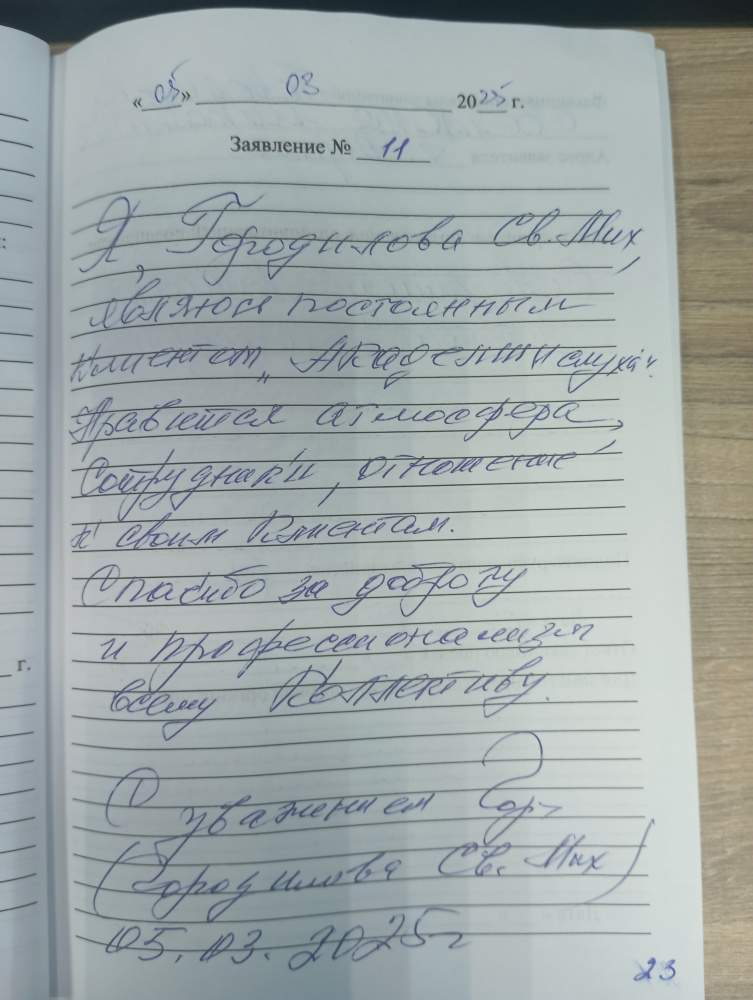 « 05 » 03 2025 г.
Заявление № 11
Я, Городилова Св. Мих,
являюсь постоянным
клиентом „Академии слуха“.
Нравится атмосфера,
сотрудники, отношение
к своим клиентам.
Спасибо за доброту
и профессионализм
всему коллективу.
С уважением Гор
(Городилова Св. Мих)
05.03.2025г
23
г.